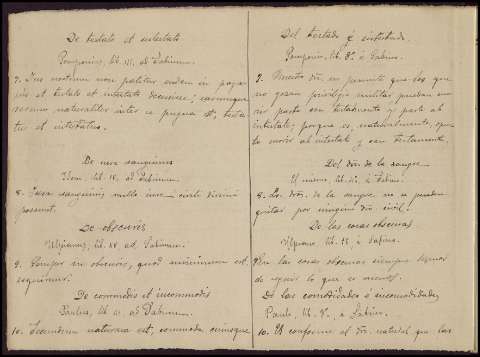 De testato et intestato
Pomponius, lib. III. ad Sabinum.
7. Jus nostrum non patitur eudem in paga-
nis et testato et intestato decessisse; earumque
rerum naturaliter inter se pugna est, testa-
tus et intestatus.
De jure sanguinis
Idem, lib. IV. ad Sabinum.
8. Jura sanguinis nullo jure civili dirimi
possunt.
De obscuris
Ulpianus, lib. XV. ad Sabinum.
9. Semper in obscuris, quod minimum est
sequimur.
De commodis et incommodis
Paulus, lib. III. ad Sabinum.
10. Secundum natura est, commoda cuiusque
Del testado é intestado
Pomponio, lib. 3º. á Sabino.
7. Nuestro dro. no permite que los que
no gozan privilegio militar puedan mo-
rir parte con testamento y parte ab
intestato; porque es, naturalmente, opues-
to morir ab intestato y con testamento.
Del dro. de la sangre
El mismo, lib. 4º. á Sabino.
8. Los dros. de la sangre no se pueden
quitar por ningún dro. civil.
De las cosas obscuras
Ulpiano, lib. 15. á Sabino.
9. En las cosas obscuras siempre hemos
de seguir lo que es menos.
De las comodidades é incomodidades
Paulo, lib. 3º. á Sabino.
10. Es conforme al dro. natural que las